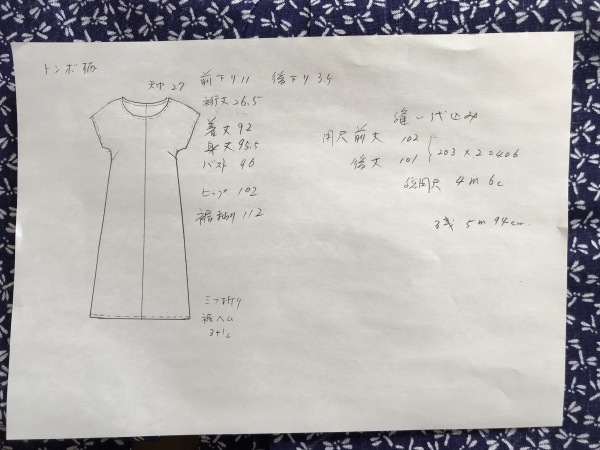 トンボ柄
天巾 27 前下り 11 後下り 3.5
裄丈 26.5
着丈 92
身丈 95.5
バスト 96
ヒップ 102
裾廻り 112
三つ折り
裾ヘム
3+1c
縫い代込み
用尺前丈 102
後丈 101 203 × 2 = 406
総用尺 4m 6c
残 5m 94cm.